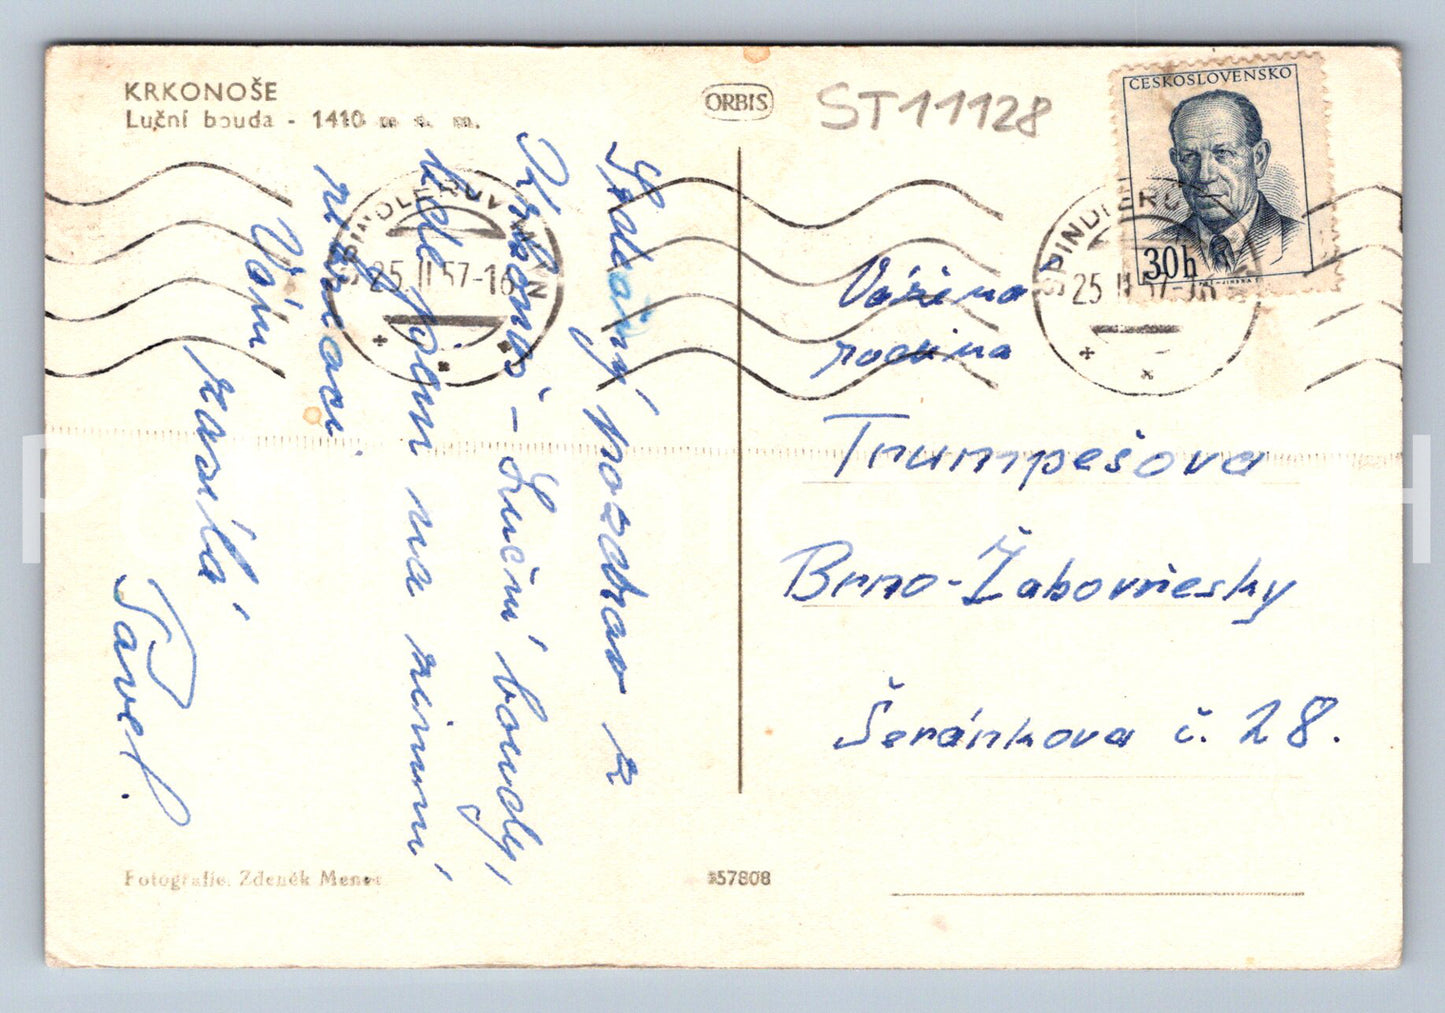 KRKONOŠE
Luční bouda - 1410 m n. m.
ORBIS
ST11128
ČESKOSLOVENSKO
30h
ŠPINDLERŮV MLÝN
25.II.57-16
ŠPINDLERŮV
25 II 57-16
Srdečný pozdrav z
Krkonoš - Luční boudy,
kde jsem na zimní
rekreaci
Vám
zasílá
Pavel.
Vážená
rodina
Trumpešova
Brno-Žabovřesky
Šeránkova č. 28.
Fotografie: Zdeněk Menec
357808